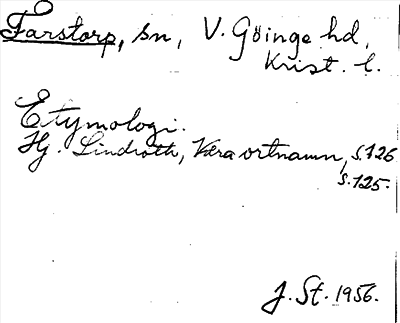 Farstorp, sn, V. Göinge hd,
Krist. l.
Etymologi.
Hj. Lindroth, Våra ortnamn, s. 126
s. 125.
J. St. 1956.